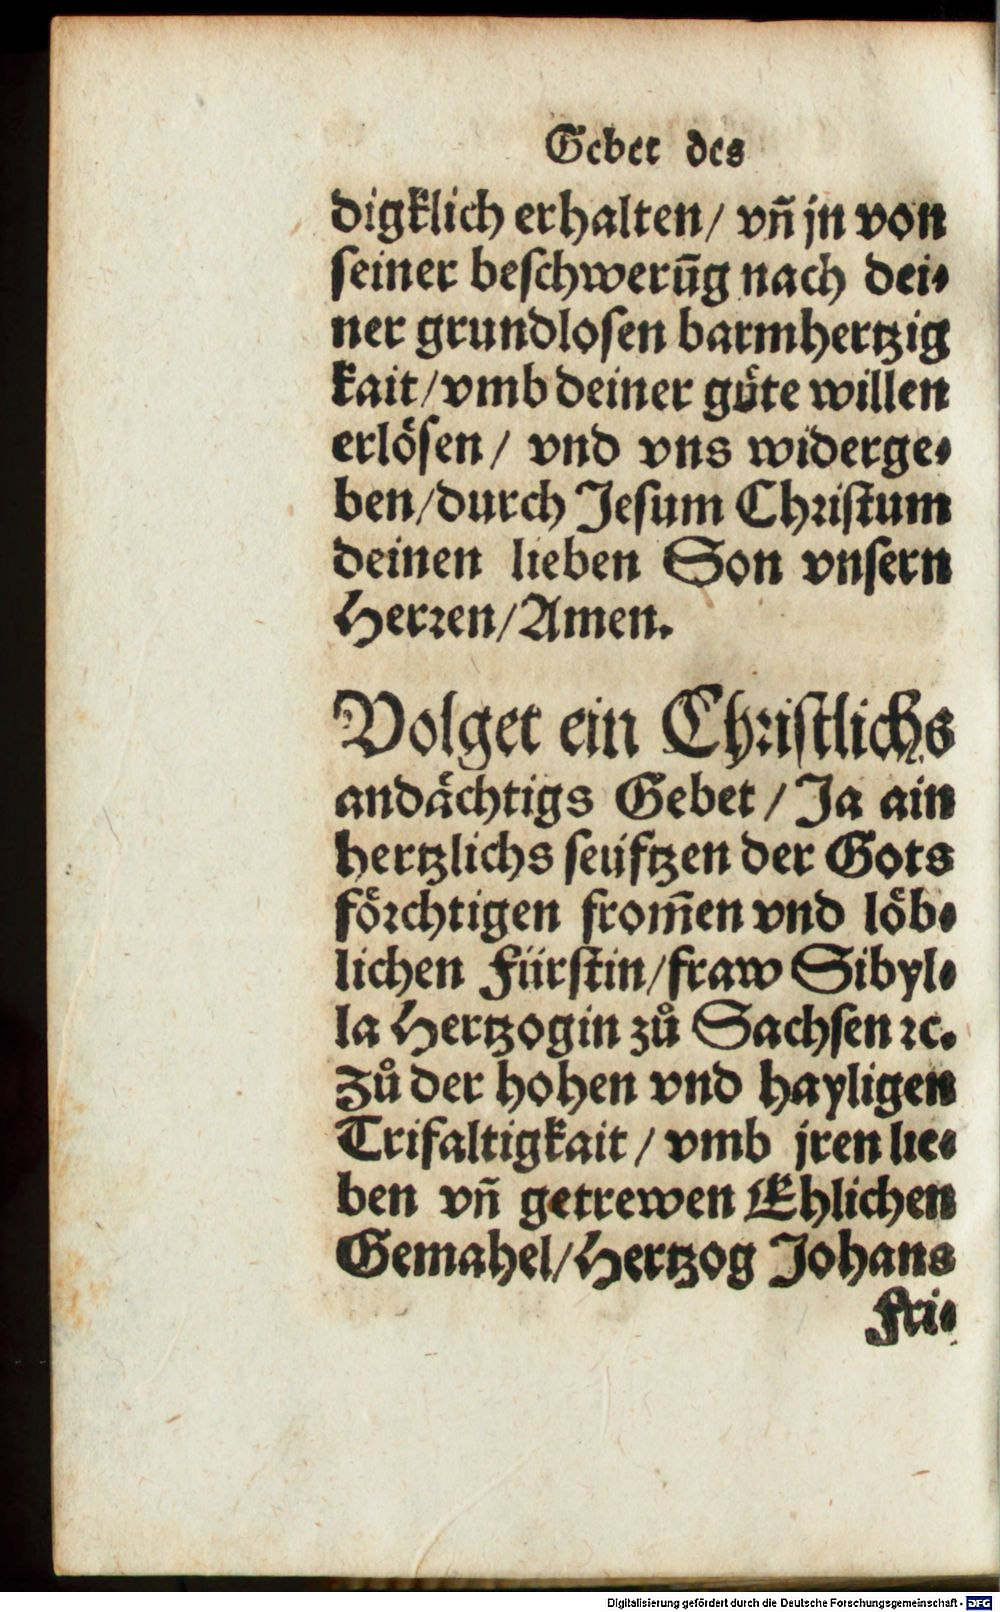 Gebet des
digklich erhalten/ vñ jn von
seiner beschwerūg nach dei-
ner grundlosen barmhertzig
kait/ vmb deiner güte willen
erlösen/ vnd vns widerge-
ben/ durch Jesum Christum
deinen lieben Son vnsern
Herren/ Amen.
Volget ein Christlichs
andächtigs Gebet/ Ja ain
hertzlichs seüfftzen der Gots
förchtigen from̄en vnd löb-
lichen Fürstin/ fraw Sibyl-
la Hertzogin zů Sachsen ꝛc.
Zů der hohen vnd hayligen
Trifaltigkait/ vmb jren lie-
ben vñ getrewen Ehlichen
Gemahel/ Hertzog Johans
Fri-
Digitalisierung gefördert durch die Deutsche Forschungsgemeinschaft - DFG